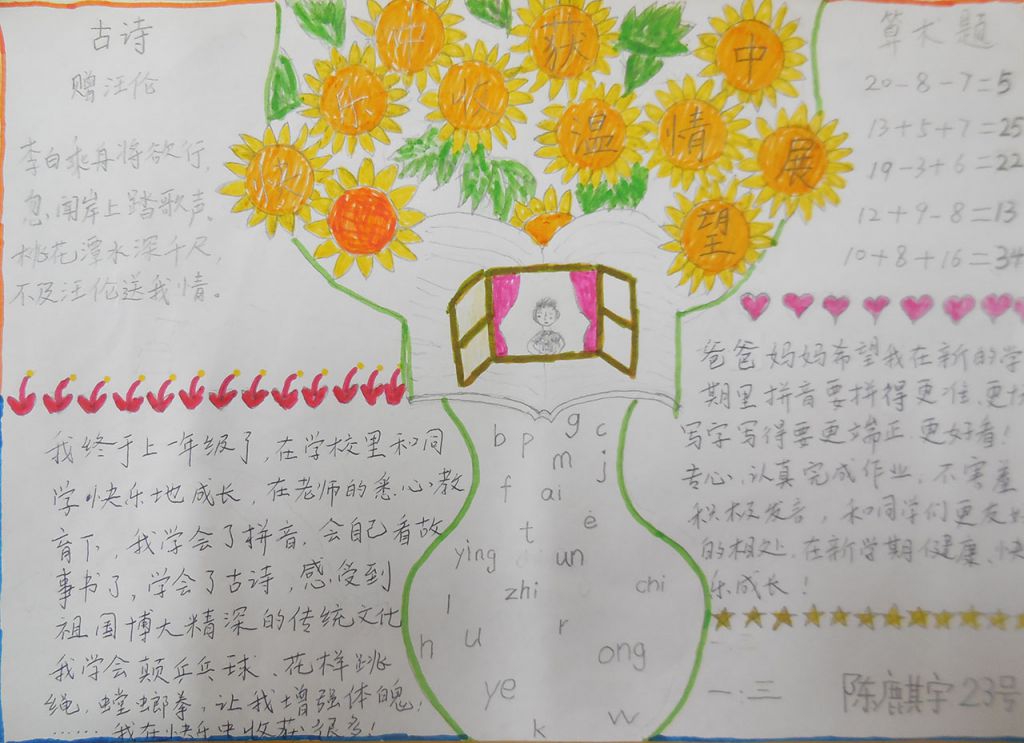 古诗
赠汪伦
李白乘舟将欲行,
忽闻岸上踏歌声。
桃花潭水深千尺,
不及汪伦送我情。
快乐中收获
温情中展望
算术题
20-8-7=5
13+5+7=25
19-3+6=22
12+9-8=13
10+8+16=34
我终于上一年级了,在学校里和同
学快乐地成长,在老师的悉心教
育下,我学会了拼音,会自己看故
事书了,学会了古诗,感受到
祖国博大精深的传统文化
我学会颠乒乓球、花样跳
绳,螳螂拳,让我增强体魄!
……我在快乐中收获很多!
b p g c
m j
f ai
t è
yìng un
zhi chi
l r
h u ong
ye w
k
爸爸妈妈希望我在新的学
期里拼音要拼得更准,更
写字写得要更端正,更好看!
专心、认真完成作业,不害羞
积极发言,和同学们更友好
的相处,在新学期健康、快
乐成长!
一.三 陈鹿其宇23号